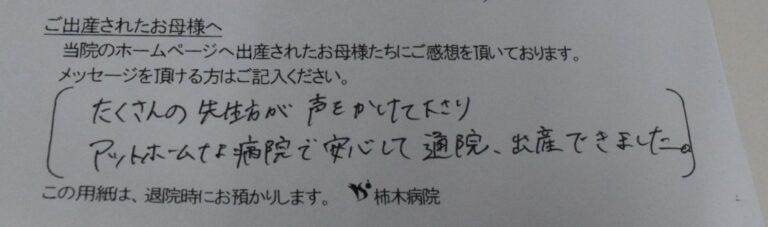 ご出産されたお母様へ
当院のホームページへ出産されたお母様たちにご感想を頂いております。
メッセージを頂ける方はご記入ください。
たくさんの先生方が声をかけて下さり
アットホームな病院で安心して通院、出産できました。
この用紙は、退院時にお預かりします。 柿木病院